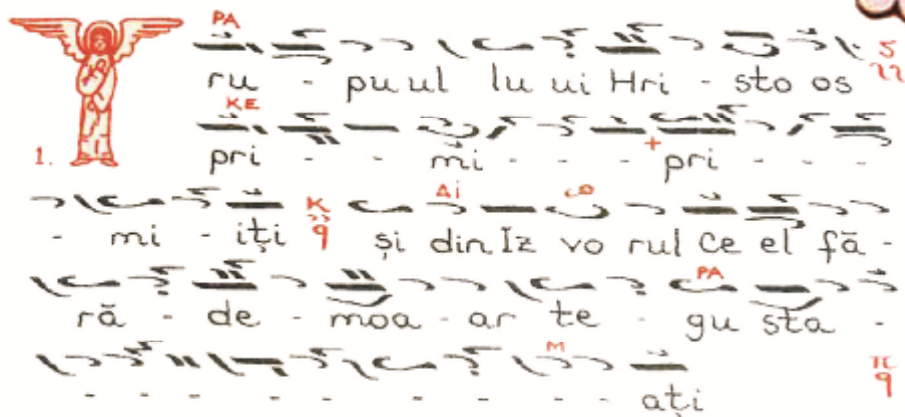 PA
ru - pu ul lu ui Hri - sto os
KE
1. pri - - mi - - - pri - - -
Δi
- mi - iți K și din Iz vo rul Ce el fă -
PA
ră - de - moa - ar te - gu sta -
M
- - - - - - - - - ați